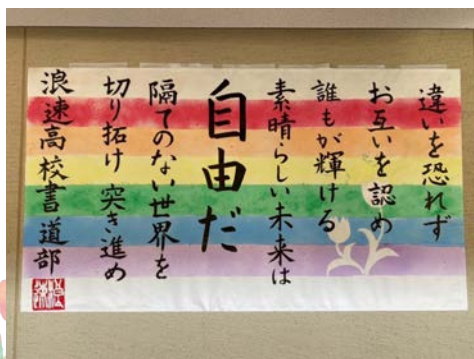 違いを恐れず
お互いを認め
誰もが輝ける
素晴らしい未来は
自由だ
隔てのない世界を
切り拓け 突き進め
浪速高校書道部